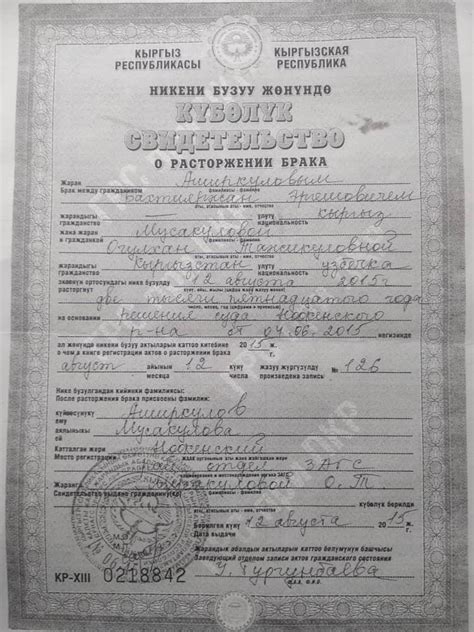 КЫРГЫЗ РЕСПУБЛИКАСЫ
КЫРГЫЗСКАЯ РЕСПУБЛИКА
НИКЕНИ БУЗУУ ЖӨНҮНДӨ
КҮБӨЛҮК
СВИДЕТЕЛЬСТВО
О РАСТОРЖЕНИИ БРАКА
Жаран Аширкуловым
Брак между гражданином фамилиясы - фамилия
Бахтияржан Эрешовичем
аты, атасынын аты - имя, отчество
жарандыгы улуту кыргыз
гражданство национальность
жана жаран Мусакуловой
и гражданкой фамилиясы - фамилия
Огулхан Тажикуловной
аты, атасынын аты - имя, отчество
жарандыгы Кыргызстан улуту узбечка
гражданство национальность
экөөнүн ортосундагы никеси бузулду 12 августа 2015г
расторгнут
две тысячи пятнадцатого года
на основании решения суда Ноокенского
р-на от 04.06.2015 негизинде
ал жөнүндө никени бузуу актыларын каттоо китебине 2015 ж.
о чем в книге регистрации актов о расторжении брака г.
август айынын 12 күнү жазуу жүргүзүлдү № 126
месяца числа произведена запись
Нике бузулгандан кийинки фамилиясы:
После расторжения брака присвоены фамилии:
күйөөсүнүн Аширкулов
ему
аялынын Мусакулова
ей
Катталган жери Ноокенский
Место регистрации
отдел ЗАГС
Жаранга Мусакуловой О.Т күбөлүк берилди
Свидетельство выдано гражданину(ке)
фамилиясы - фамилия
Берилген күнү 12 августа 2015 ж.
Дата выдачи г.
М.О.
М.П.
Жарандык абалдын актыларын каттоо бөлүмүнүн башчысы
Заведующий отделом записи актов гражданского состояния
У. Тургунбаева
КР-XIII 0218842